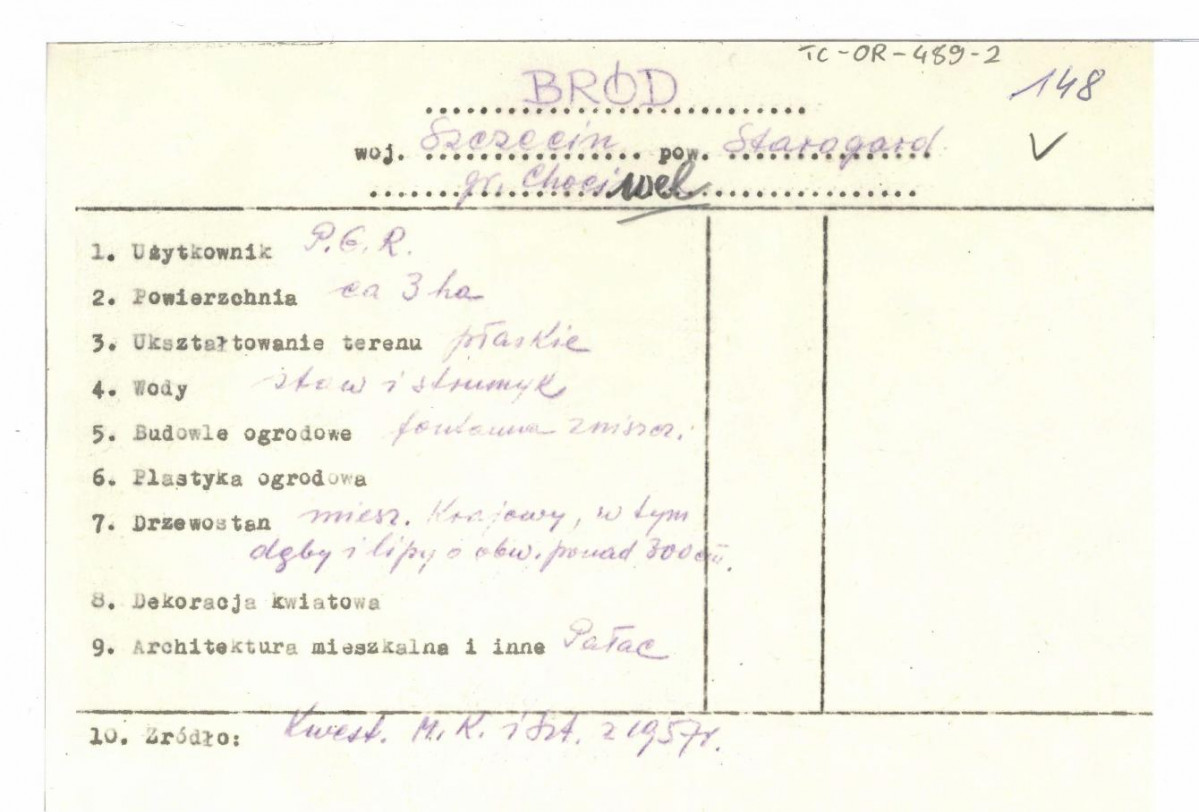 TC-OR-489-2
BRÓD
148
woj. Szczecin pow. Staragard
gr. Chociwel
1. Użytkownik P.G.R.
2. Powierzchnia ca 3 ha
3. Ukształtowanie terenu płaskie
4. Wody staw i strumyk
5. Budowle ogrodowe fontanna zniszcz.
6. Plastyka ogrodowa
7. Drzewostan miesz. Krajowy, w tym
dęby i lipy o obw. ponad 300 cm.
8. Dekoracja kwiatowa
9. Architektura mieszkalna i inne Pałac
10. Zródło: Kwest. M.K. i Szt. z 1957r.